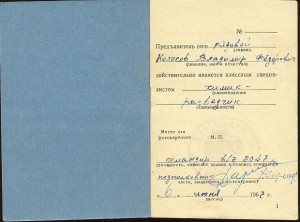 №
Предъявитель сего рядовой
(звание)
Колосов Владимир Фёдорович
(фамилия, имя и отчество)
действительно является классным специа-
листом химик-
(наименование
разведчик
специальности)
Место для
фотокарточки
М. П.
командир в/ч 2047
(должность, воинское звание и подпись командира
подполковник
части, выдавшего удостоверение)
6 июня 1967 г.
(месяц)
1